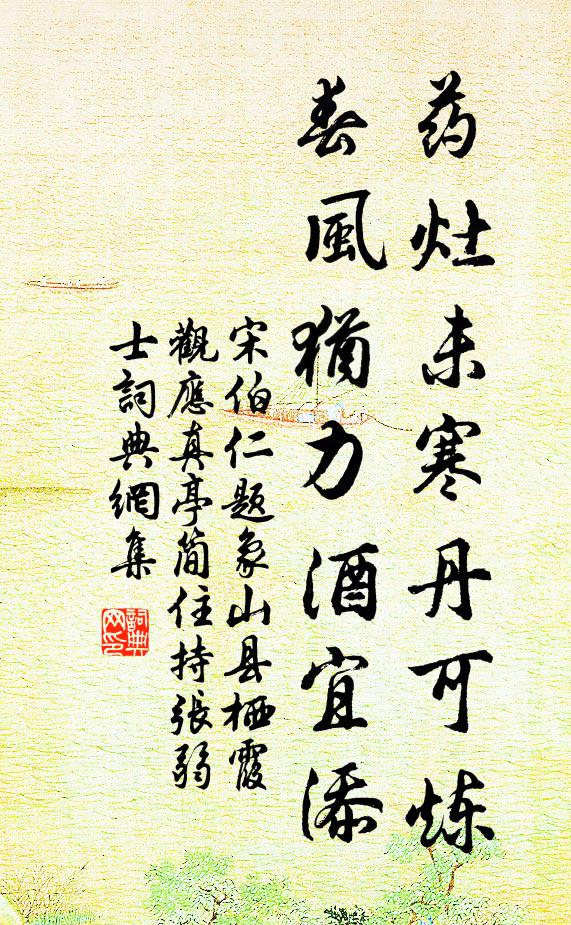 药灶未寒丹可炼
春風犹力酒宜添
宋伯仁题象山县栖霞
觀應真亭简住持張弱
士詞典網集
詞典
网印